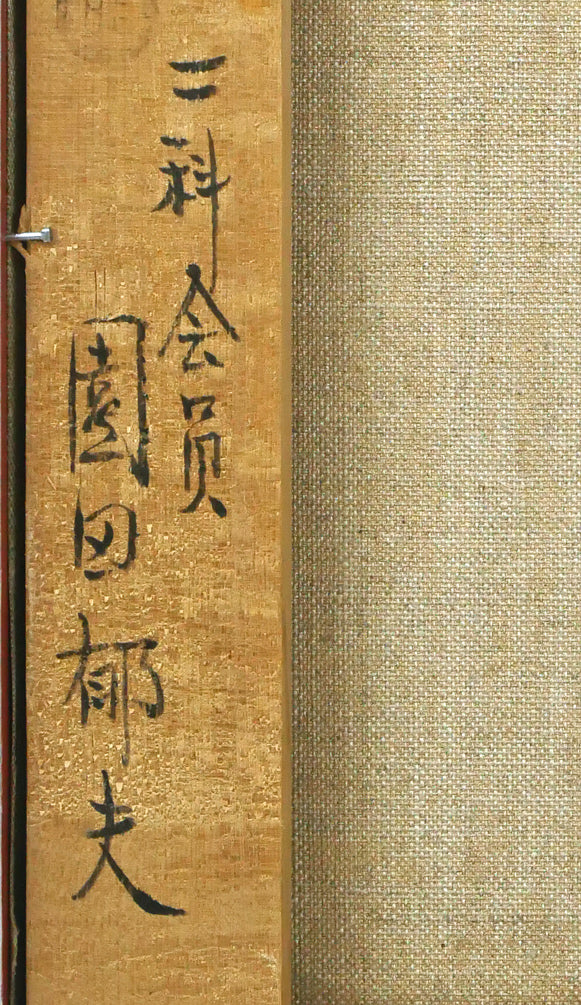 二科会员
園田郁夫